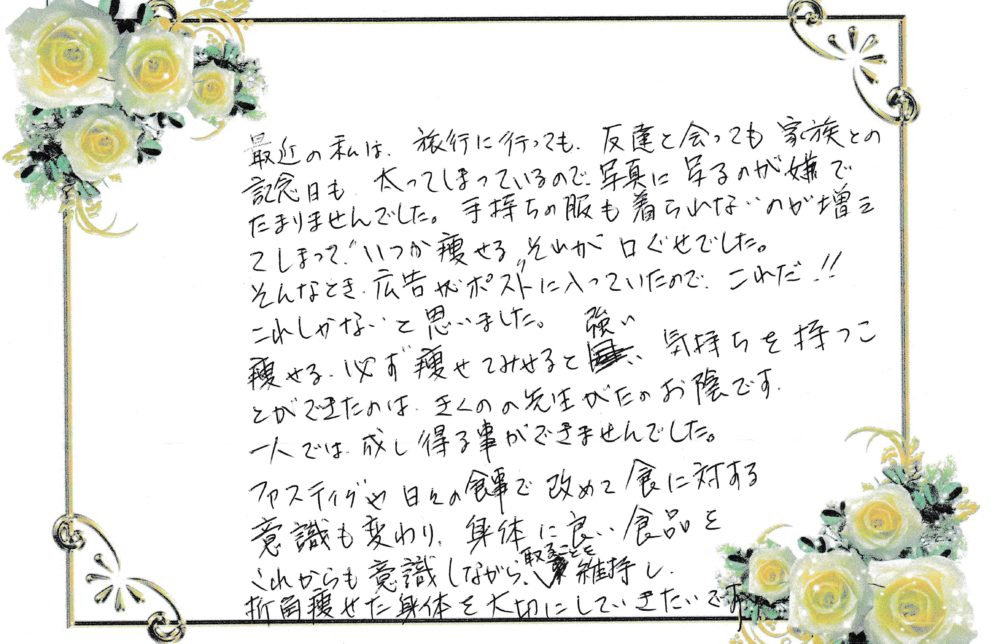 最近の私は、旅行に行っても、友達と会っても家族との
記念日も、太ってしまっているので、写真に写るのが嫌で
たまりませんでした。手持ちの服も着られないのが増え
てしまって、"いつか痩せる"それが口ぐせでした。
そんなとき、広告がポストに入っていたので、これだ!!
これしかないと思いました。
痩せる、必ず痩せてみせると強い気持ちを持つこ
とができたのは、きくのの先生がたのお陰です。
一人では、成し得る事ができませんでした。
ファスティグや日々の食事で改めて食に対する
意識も変わり、身体に良い食品を
これからも意識しながら、取ることを維持し、
折角痩せた身体を大切にしていきたいです。